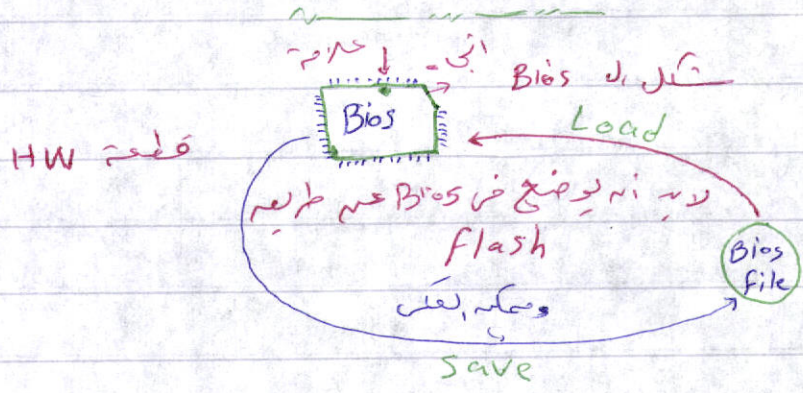 علامة
شكل الـ Bios
Bios
Load
قطعة HW
لابد أن يوضع في Bios عن طريق
flash
Bios
file
وممكن العكس
Save